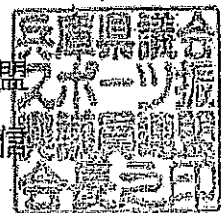 盟
兵庫県議会
スポーツ振
興議員連盟
会長之印